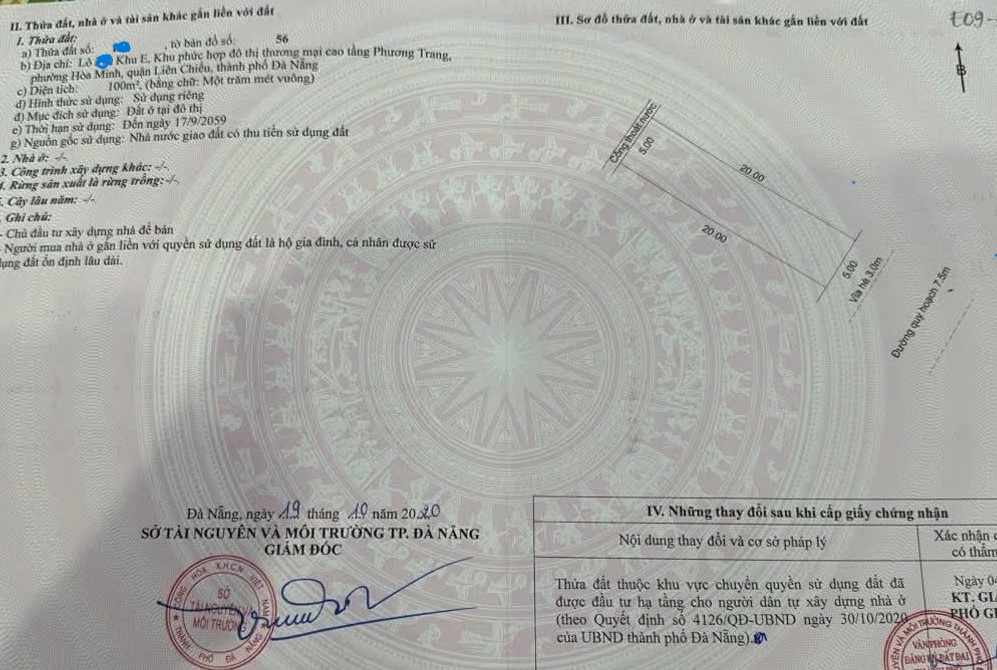 II. Thửa đất, nhà ở và tài sản khác gắn liền với đất
1. Thửa đất:
a) Thửa đất số: , tờ bản đồ số: 56
b) Địa chỉ: Lô Khu E, Khu phức hợp đô thị thương mại cao tầng Phương Trang,
phường Hòa Minh, quận Liên Chiểu, thành phố Đà Nẵng
c) Diện tích: 100m², (bằng chữ: Một trăm mét vuông)
d) Hình thức sử dụng: Sử dụng riêng
đ) Mục đích sử dụng: Đất ở tại đô thị
e) Thời hạn sử dụng: Đến ngày 17/9/2059
g) Nguồn gốc sử dụng: Nhà nước giao đất có thu tiền sử dụng đất
2. Nhà ở: -/-
3. Công trình xây dựng khác: -/-
4. Rừng sản xuất là rừng trồng: -/-
. Cây lâu năm: -/-
. Ghi chú:
- Chủ đầu tư xây dựng nhà để bán
- Người mua nhà ở gắn liền với quyền sử dụng đất là hộ gia đình, cá nhân được sử
dụng đất ổn định lâu dài.
III. Sơ đồ thửa đất, nhà ở và tài sản khác gắn liền với đất
E09-
B
Cống thoát nước
5.00
20.00
20.00
5.00
Vỉa hè 3.0m
Đường quy hoạch 7.5m
Đà Nẵng, ngày 19 tháng 10 năm 2020
SỞ TÀI NGUYÊN VÀ MÔI TRƯỜNG TP. ĐÀ NẴNG
GIÁM ĐỐC
CỘNG HÒA X.H.C.N VIỆT NAM
SỞ
TÀI NGUYÊN VÀ
MÔI TRƯỜNG
THÀNH PHỐ ĐÀ NẴNG
IV. Những thay đổi sau khi cấp giấy chứng nhận
Nội dung thay đổi và cơ sở pháp lý
Xác nhận
có thẩm
Thửa đất thuộc khu vực chuyển quyền sử dụng đất đã
được đầu tư hạ tầng cho người dân tự xây dựng nhà ở
(theo Quyết định số 4126/QĐ-UBND ngày 30/10/2020
của UBND thành phố Đà Nẵng).
Ngày 04
KT. GI
PHÓ GI
VÀ MÔI TRƯỜNG THÀNH PHỐ
VĂN PHÒNG
ĐĂNG KÝ ĐẤT ĐAI